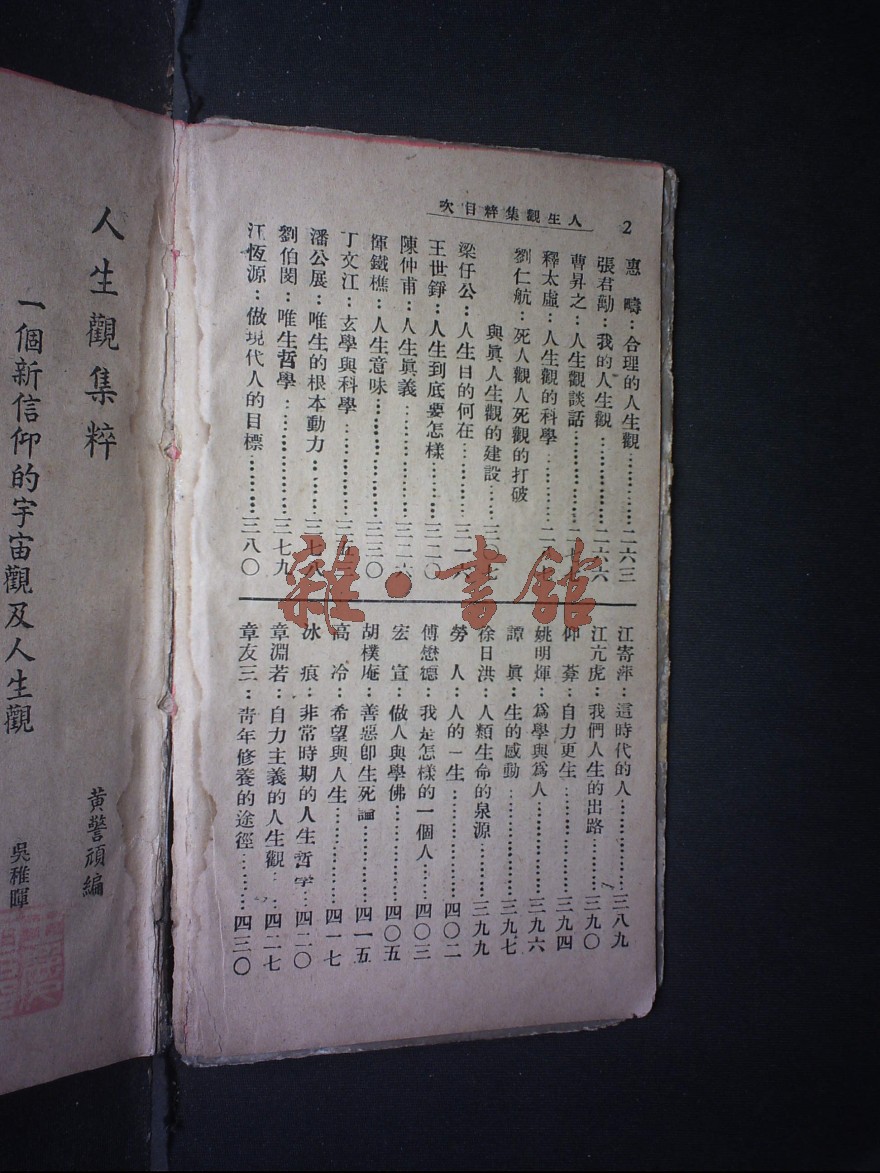 2
人生觀集粹目次
惠　疇：合理的人生觀…………二六三
張君勱：我的人生觀……………二六六
曹昇之：人生觀談話……二
釋太虛：人生觀的科學…………二
劉仁航：死人觀人死觀的打破
與眞人生觀的建設……三
梁任公：人生目的何在………三一
王世錚：人生到底要怎樣………三二〇
陳仲甫：人生眞義………三二六
惲鐵樵：人生意味…………三三〇
丁文江：玄學與科學…………三五
潘公展：唯生的根本動力……三七八
劉伯閔：唯生哲學…………三七九
江恆源：做現代人的目標………三八〇
江寄萍：這時代的人……………三八九
江亢虎：我們人生的出路………三九〇
仰　蓁：自力更生……………三九四
姚明煇：爲學與爲人…………三九六
譚　眞：生的感動……………三九七
徐日洪：人類生命的泉源………三九九
勞　人：人的一生……………四〇二
傅懋德：我是怎樣的一個人……四〇三
宏　宣：做人與學佛…………四〇五
胡樸庵：善惡卽生死論…………四一五
高　冷：希望與人生…………四一七
冰　痕：非常時期的人生哲學…四二〇
章淵若：自力主義的人生觀…四二七
章友三：青年修養的途徑………四三〇
人生觀集粹
黃警頑編
一個新信仰的宇宙觀及人生觀
吳稚暉
雜·書館